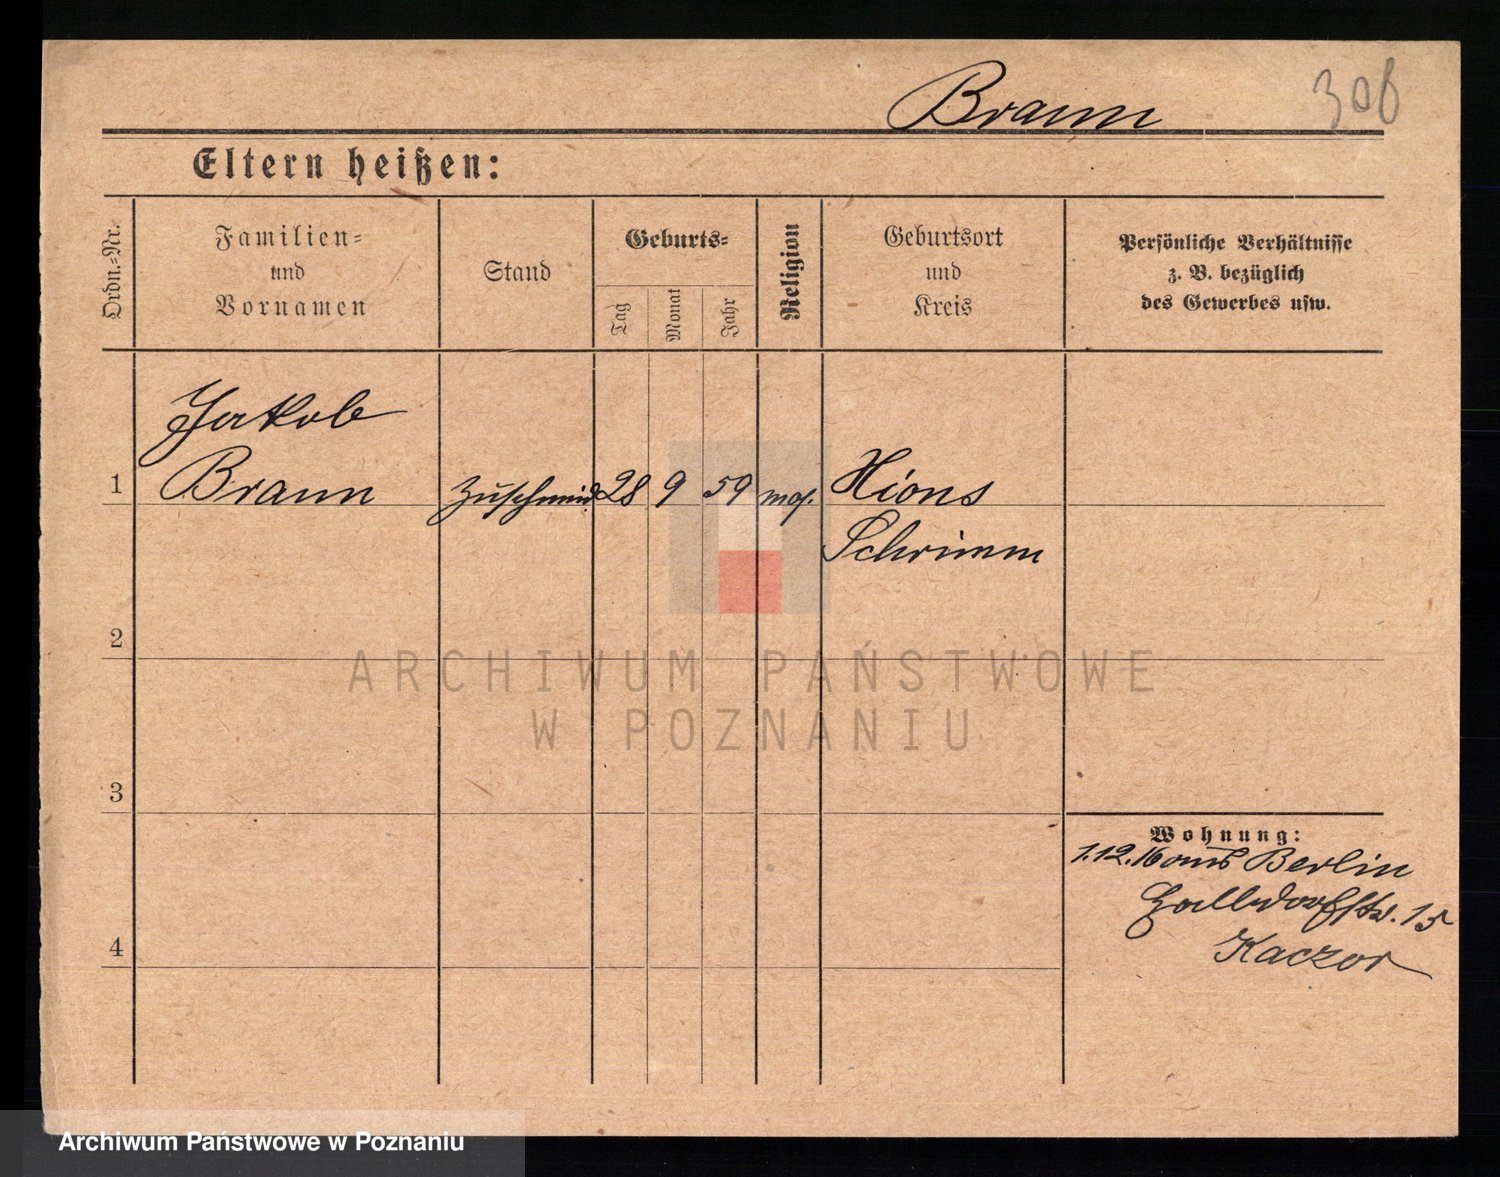 Braun 306
Eltern heißen:
Ordn.-Nr.
Familien-
und
Vornamen
Stand
Geburts-
Tag
Monat
Jahr
Religion
Geburtsort
und
Kreis
Persönliche Verhältnisse
z. B. bezüglich
des Gewerbes usw.
Jakob
1 Braun Zuschneid. 28 9 59 mos. Xions
Schrimm
2
3
4
Wohnung:
1.12.16 aus Berlin
15
Kaczor
ARCHIWUM PAŃSTWOWE
W POZNANIU
Archiwum Państwowe w Poznaniu